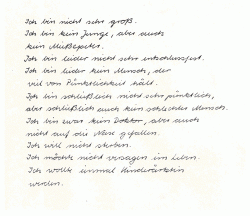 Ich bin nicht sehr groß.
Ich bin kein Junge, aber auch
kein
Ich bin leider nicht sehr entschlussfest.
Ich bin leider kein Mensch, der
viel von Pünktlichkeit hält.
Ich bin schließlich nicht sehr pünktlich,
aber schließlich auch kein schlechter Mensch.
Ich bin zwar kein Doktor, aber auch
nicht auf die Nase gefallen.
Ich will nicht sterben.
Ich möchte nicht versagen im Leben.
Ich wollte einmal Kindergärtnerin
werden.